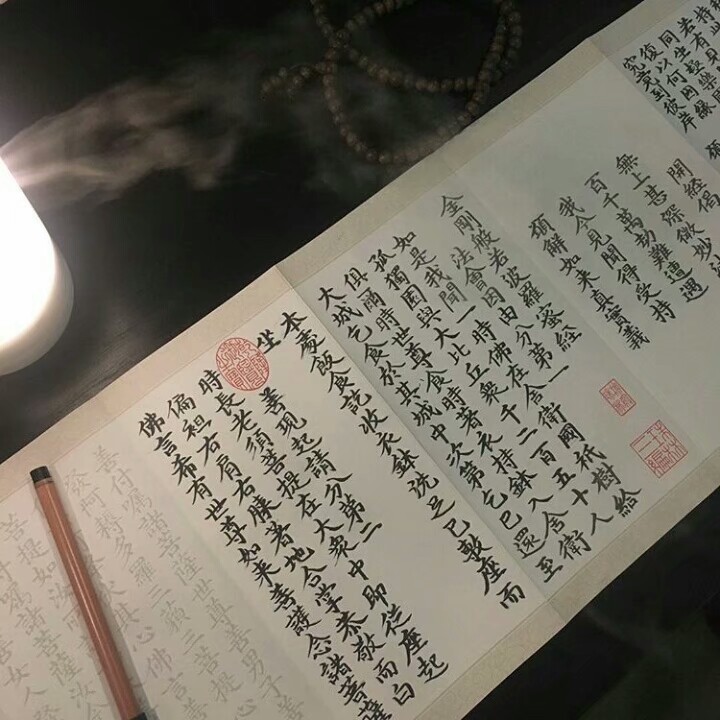 復以何因緣
究竟到彼岸
開經偈
無上甚深微妙法
百千萬劫難遭遇
我今見聞得受持
願解如來真實義
金剛般若波羅蜜經
法會因由分第一
如是我聞一時佛在舍衛國祇樹給
孤獨園與大比丘衆千二百五十人
俱爾時世尊食時著衣持鉢入舍衛
大城乞食於其城中次第乞已還至
本處飯食訖收衣鉢洗足已敷座而
坐
善現起請分第二
時長老須菩提在大衆中即從座起
偏袒右肩右膝著地合掌恭敬而白
佛言希有世尊如來善護念諸菩薩
善付囑諸菩薩世尊善男子善
發阿耨多羅三藐三菩提心